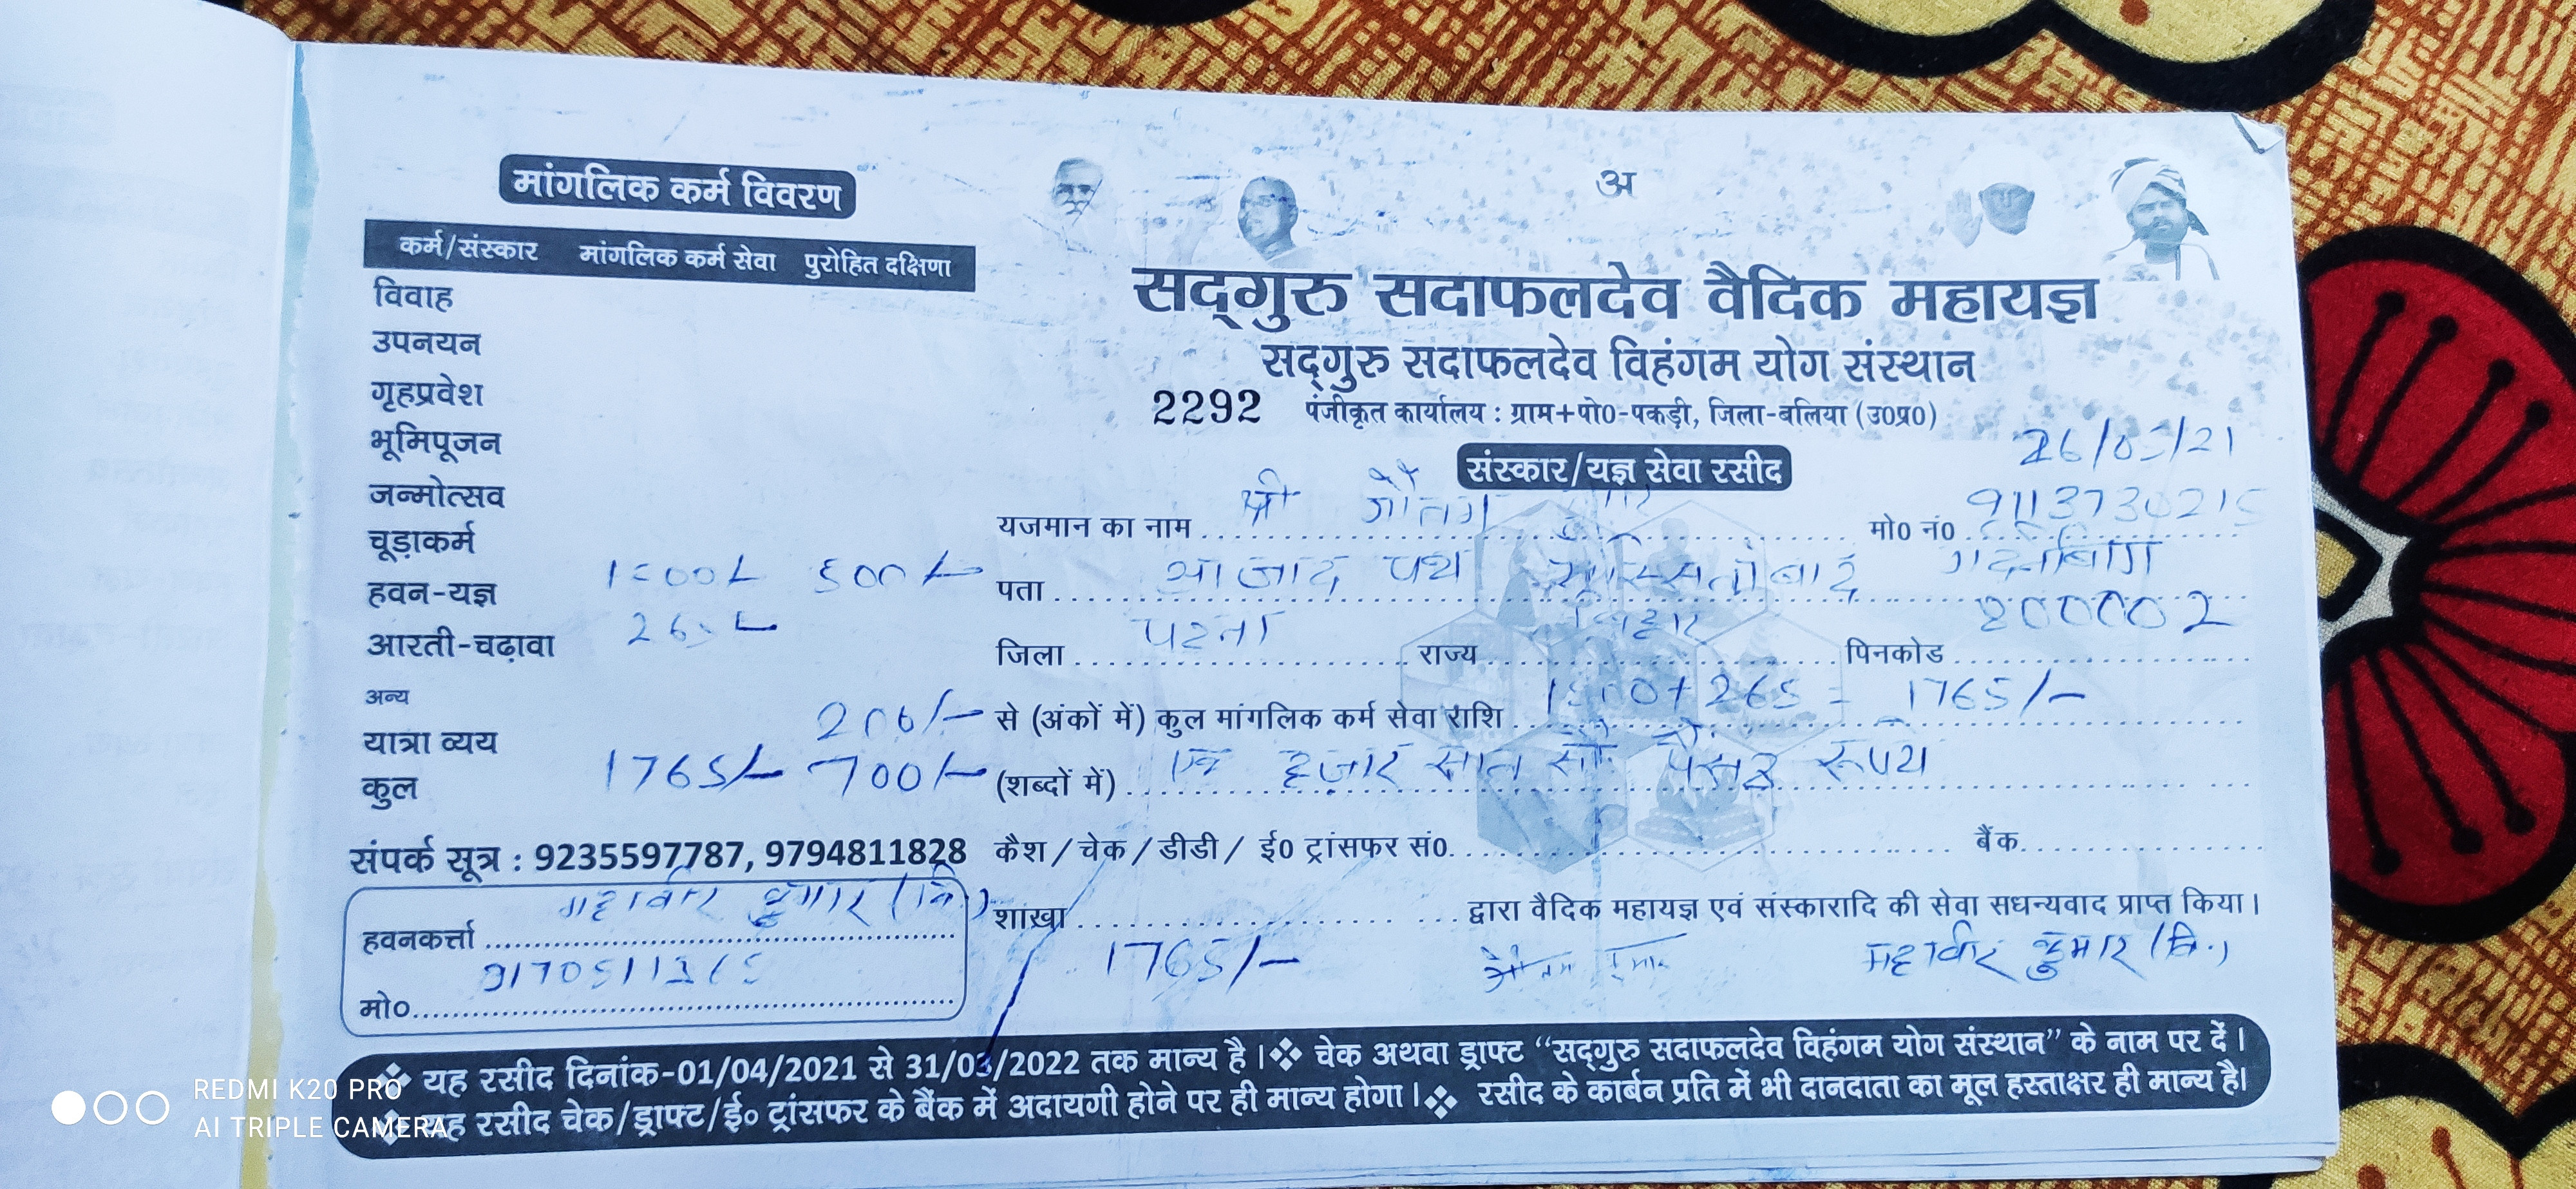 मांगलिक कर्म विवरण
कर्म/संस्कार मांगलिक कर्म सेवा पुरोहित दक्षिणा
विवाह
उपनयन
गृहप्रवेश
भूमिपूजन
जन्मोत्सव
चूड़ाकर्म
हवन-यज्ञ 1500/- 500/-
आरती-चढ़ावा 265/-
अन्य
यात्रा व्यय 200/-
कुल 1765/- 700/-
संपर्क सूत्र : 9235597787, 9794811828
हवनकर्त्ता महावीर कुमार (वि.)
मो०
अ
सद्गुरु सदाफलदेव वैदिक महायज्ञ
सद्गुरु सदाफलदेव विहंगम योग संस्थान
2292 पंजीकृत कार्यालय : ग्राम+पो०-पकड़ी, जिला-बलिया (उ०प्र०)
संस्कार/यज्ञ सेवा रसीद
यजमान का नाम श्री गौतम कुमार मो० नं० 9113730215
पता आजाद पथ
जिला पटना राज्य बिहार पिनकोड 800002
से (अंकों में) कुल मांगलिक कर्म सेवा राशि 1500+265 = 1765/-
(शब्दों में) एक हजार सात सौ पैंसठ रूपये
कैश/चेक/डीडी/ ई० ट्रांसफर सं० बैंक
शाखा द्वारा वैदिक महायज्ञ एवं संस्कारादि की सेवा सधन्यवाद प्राप्त किया।
1765/- गौतम कुमार महावीर कुमार (वि.)
❖ यह रसीद दिनांक-01/04/2021 से 31/03/2022 तक मान्य है। ❖ चेक अथवा ड्राफ्ट “सद्गुरु सदाफलदेव विहंगम योग संस्थान” के नाम पर दें।
❖ यह रसीद चेक/ड्राफ्ट/ई० ट्रांसफर के बैंक में अदायगी होने पर ही मान्य होगा। ❖ रसीद के कार्बन प्रति में भी दानदाता का मूल हस्ताक्षर ही मान्य है।
REDMI K20 PRO
AI TRIPLE CAMERA